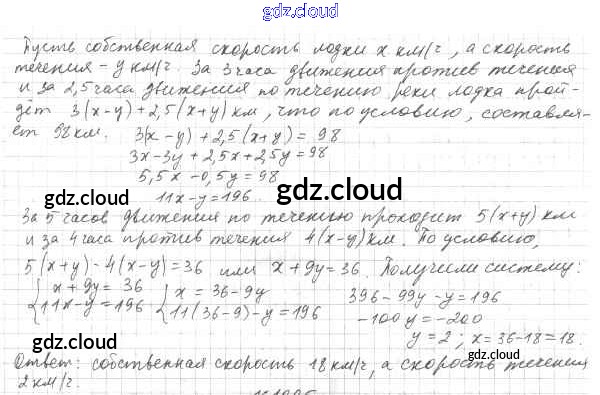 gdz.cloud
Пусть собственная скорость лодки x км/ч, а скорость
течения – y км/ч. За 3 часа движения против течения
и за 2,5 часа движения по течению реки лодка прой-
дёт 3(x-y)+2,5(x+y) км, что по условию, составля-
ет 98 км. 3(x-y)+2,5(x+y)=98
3x-3y+2,5x+2,5y=98
5,5x-0,5y=98
gdz.cloud gdz.cloud
11x-y=196.
За 5 часов движения по течению проходит 5(x+y) км
и за 4 часа против течения 4(x-y) км. По условию,
5(x+y)-4(x-y)=36 или x+9y=36. Получим систему:
{x+9y=36 {x=36-9y 396-99y-y=196
{11x-y=196 {11(36-9)-y=196 -100y=-200
gdz.cloud gdz.cloud
y=2; x=36-18=18.
Ответ: собственная скорость 18 км/ч, а скорость течения
2 км/ч.
gdz.cloud